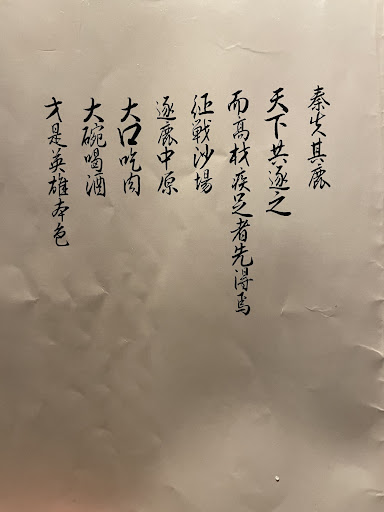 秦失其鹿
天下共逐之
而高材疾足者先得焉
征戰沙場
逐鹿中原
大口吃肉
大碗喝酒
才是英雄本色